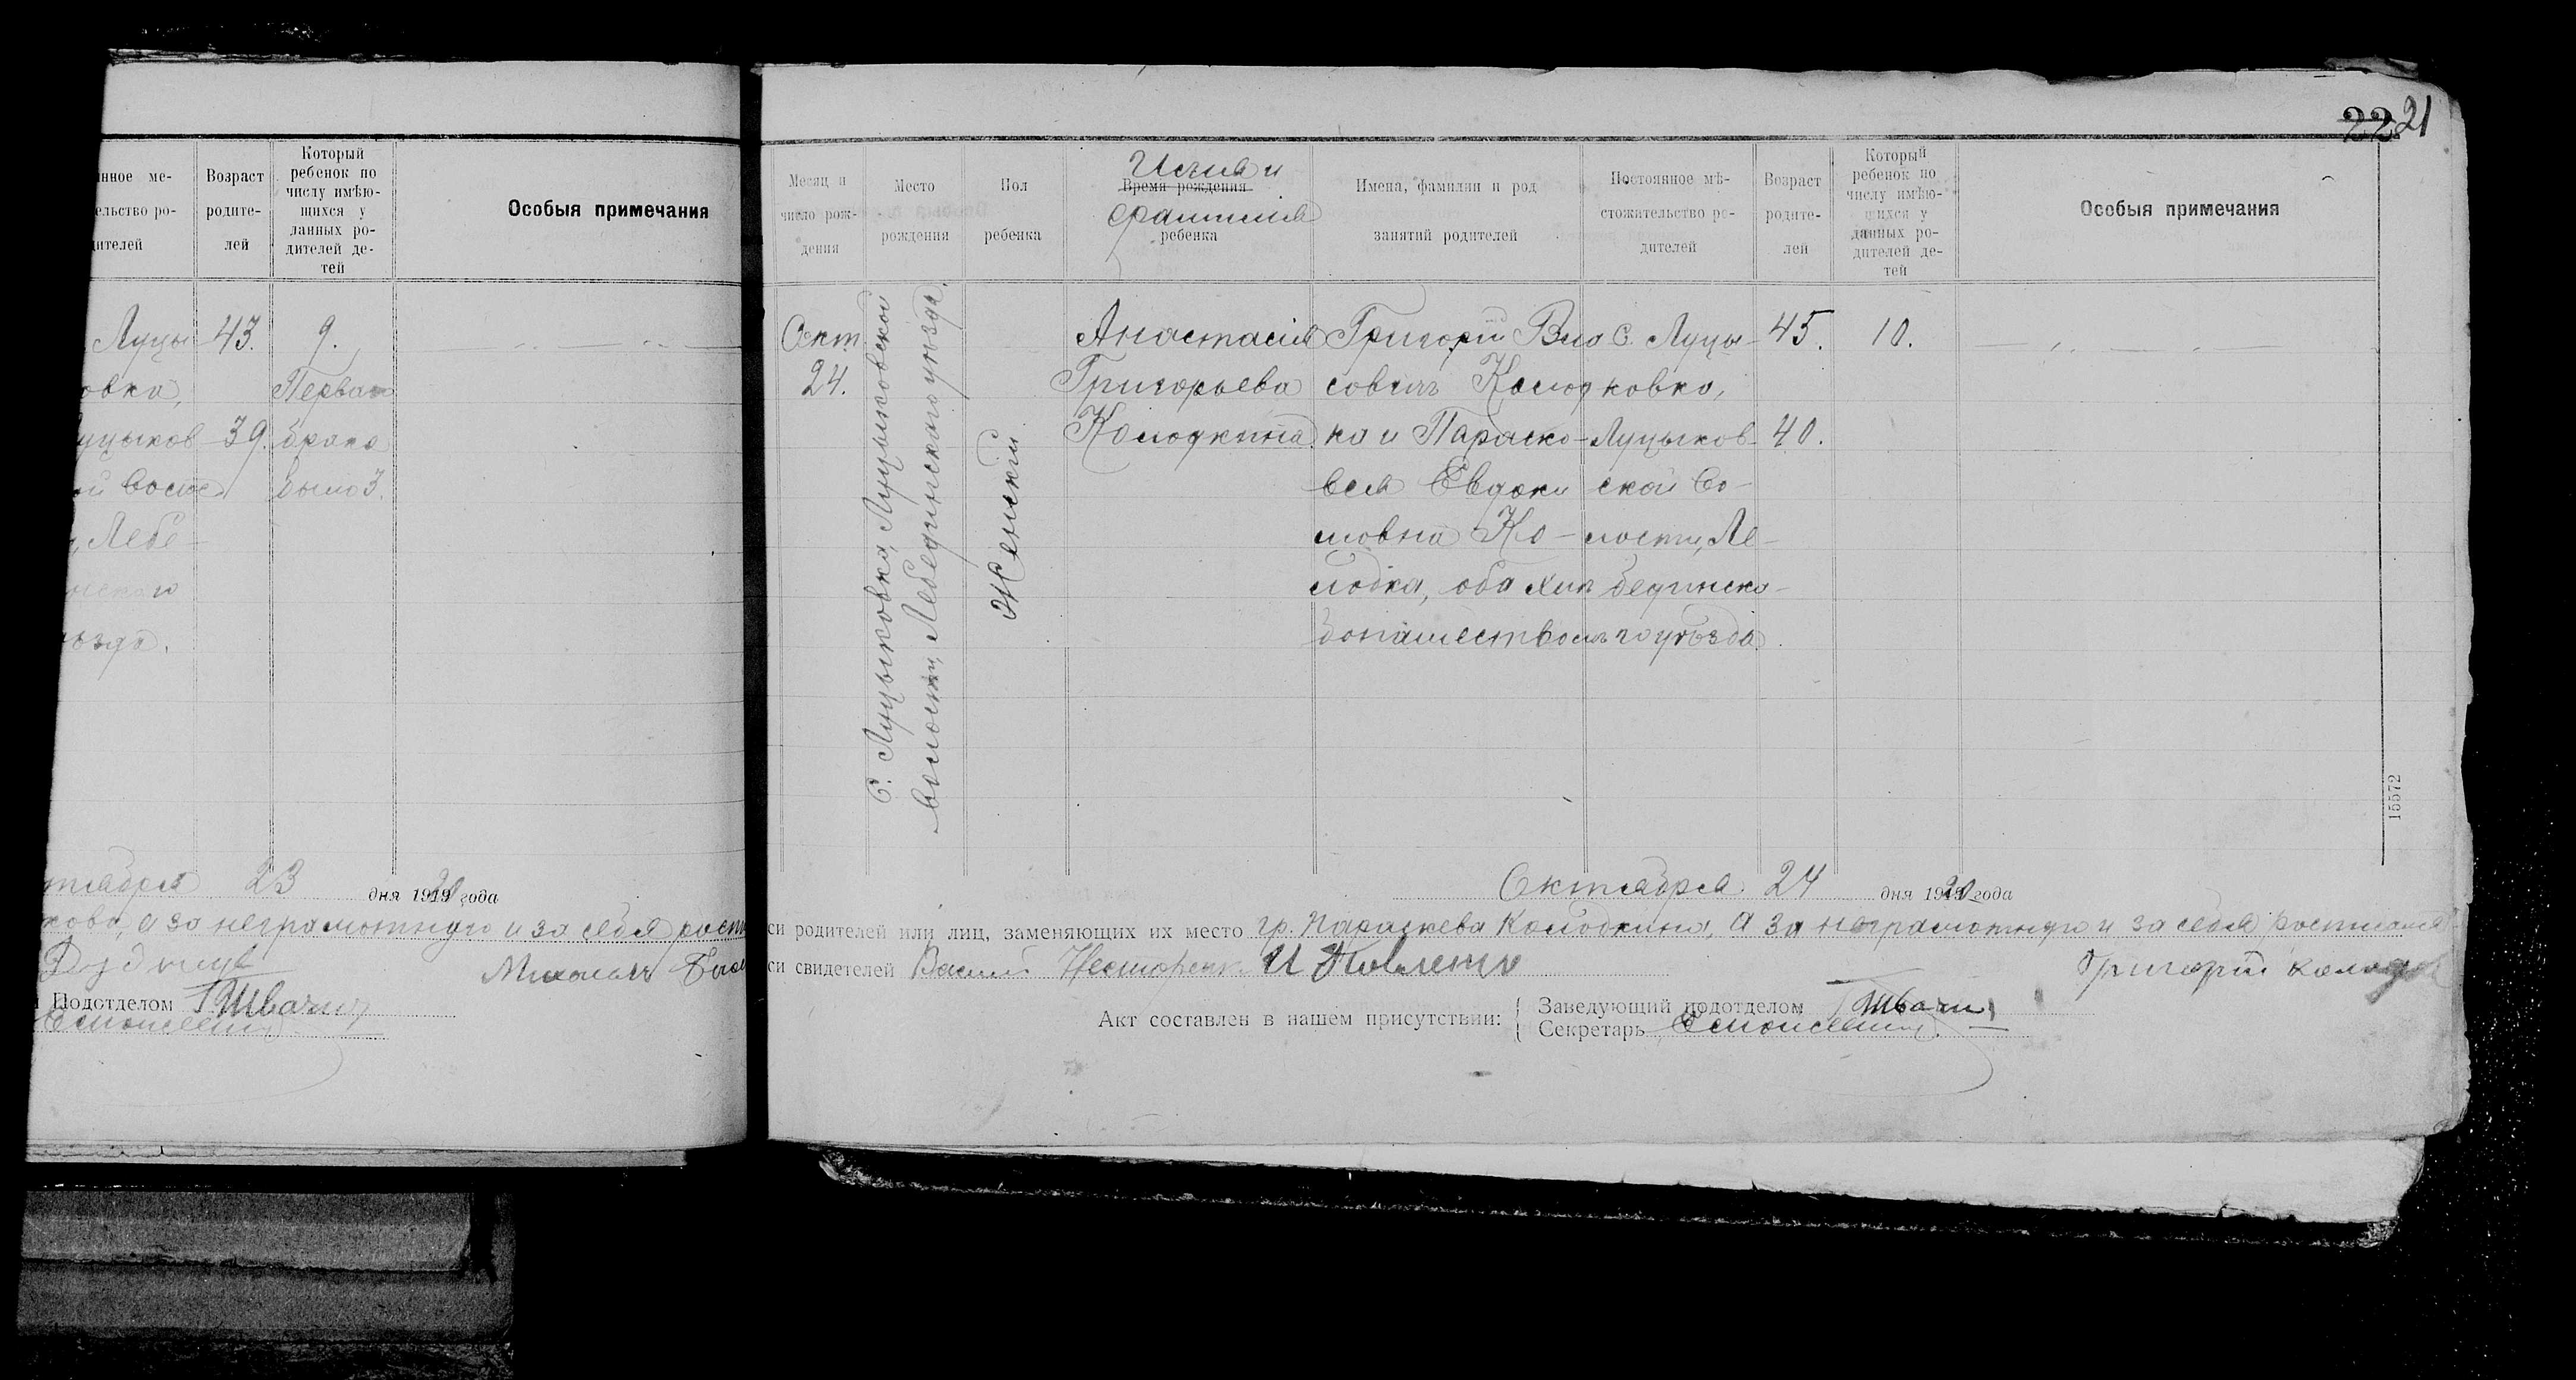 22 21
нное ме-
ельство ро-
дителей
Возраст
родите-
лей
Который
ребенок по
числу имѣю-
щихся у
данных ро-
дителей де-
тей
Особыя примечания
Луцы
овка,
уцыков
Лебе-
ѣзда.
43.
39.
9.
Первая
брака
было 3.
тября 23 дня 1920 года
кова, а за неграмотную и за себя
Подотделом
Месяц и
число рож-
дения
Место
рождения
Пол
ребенка
Имя и
Время рождения
фамилия
ребенка
Имена, фамилии и род
занятий родителей
Постоянное мѣ-
стожительство ро-
дителей
Возраст
родите-
лей
Который
ребенок по
числу имѣю-
щихся у
данных ро-
дителей де-
тей
Особыя примечания
Окт.
24.
С. Луцыковка, Луцыковской
волости, Лебединского уѣзда.
Женский
Анастасия
Григорьева
Колодкина
Григорий Вла
совичъ Колод
ка и Параско-
вея Евдоки
мовна Ко-
лодка, оба хлѣ
бопашествомъ
С. Луцы-
ковка,
Луцыков-
ской во-
лости, Ле-
бединска-
го уѣзда.
45.
40.
10.
15572
Октября 24 дня 1920 года
си родителей или лиц, заменяющих их место гр. Параскева Колодкина, а за неграмотную и за себя
Григорий
си свидетелей
Акт составлен в нашем присутствии:
Заведующий подотделом
Секретарь